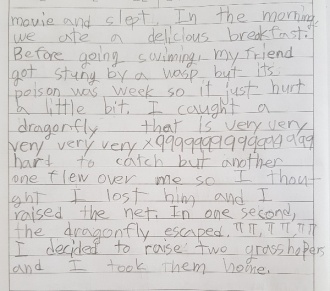 movie and slept. In the morning,
we ate a delicious breakfast.
Before going swiming, my friend
got stung by a wasp but its
poison was week so it just hurt
a little bit. I caught a
dragonfly that is very very
very very very x999999999999999
hart to catch but another
one flew over me so I thou-
ght I lost him and I
raised the net. In one second,
the dragonfly escaped. ππ, ππ, ππ
I decided to raise two grasshopers
and I took them home.